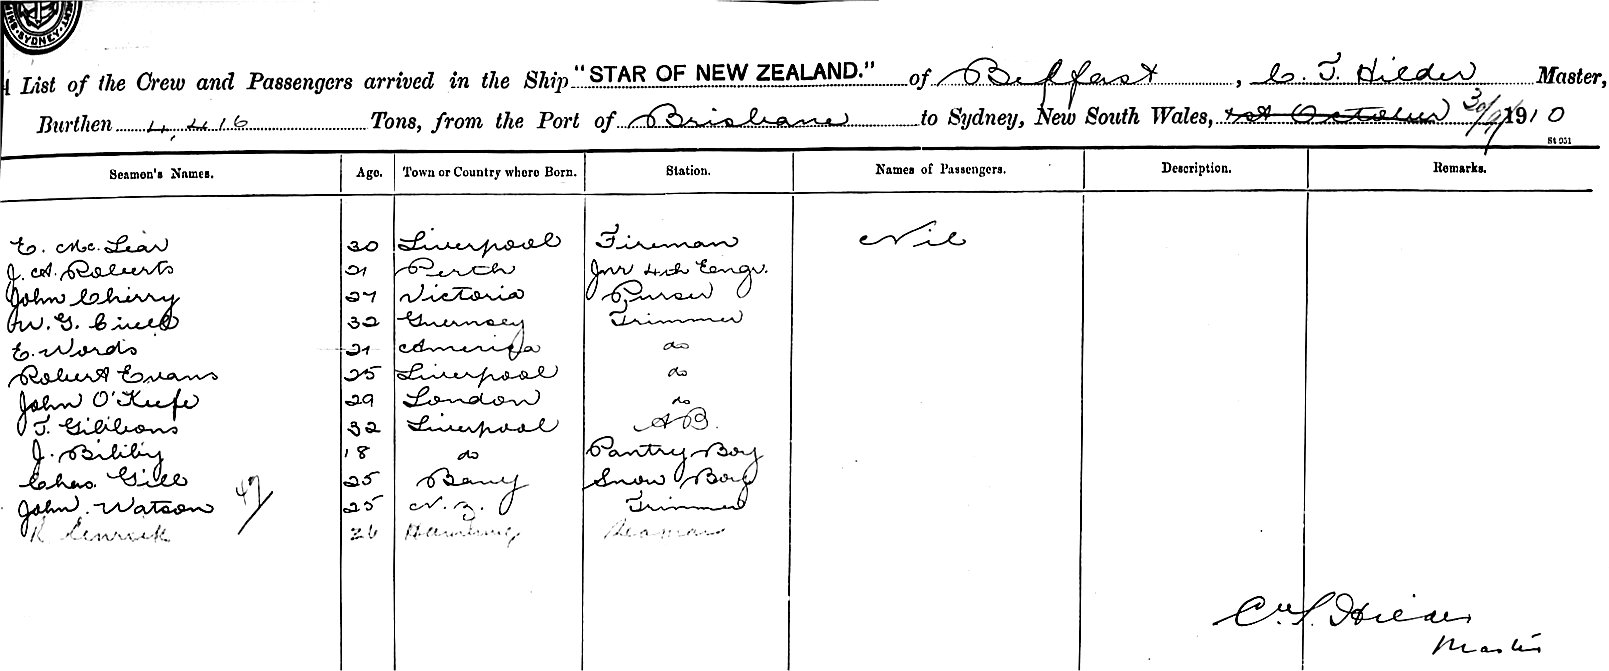 SYDNEY
List of the Crew and Passengers arrived in the Ship "STAR OF NEW ZEALAND." of Belfast, C. T. Hilder Master,
Burthen 4,416 Tons, from the Port of Brisbane to Sydney, New South Wales, 1st October 30/9/1910
St 951
Seamen's Names. Age. Town or Country where Born. Station. Names of Passengers. Description. Remarks.
E. Mc. Lear 30 Liverpool Fireman Nil
J. A. Roberts 21 Perth Jnr 4th Eengr.
John Cherry 27 Victoria Purser
W. G. 32 Guernsey Trimmer
E. Words 21 America do
Robert Evans 25 Liverpool do
John O'Keefe 29 London do
T. Gibbons 32 Liverpool AB.
J. Bibby 18 do Pantry Boy
Chas. Gill 25 Barry Snow Boy
John. Watson 47/ 25 N.Z. Trimmer
K 26 Hamburg Seaman
Hilder
Master